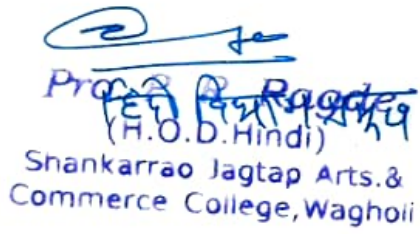 हिंदी विभाग प्रमुख
(H.O.D.Hindi)
Shankarrao Jagtap Arts.&
Commerce College,Wagholi